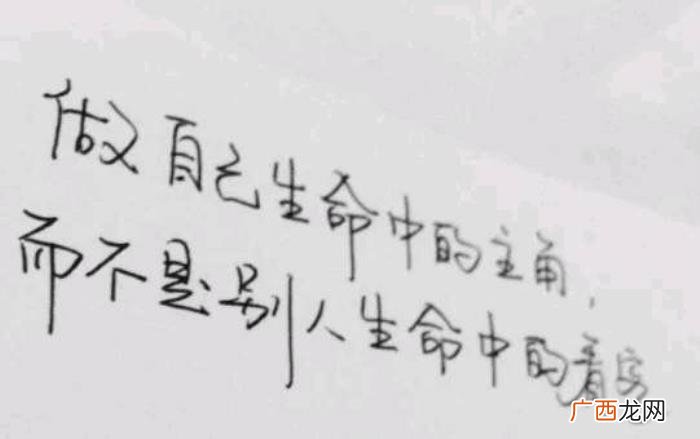 做自己生命中的主角,
而不是别人生命中的看客
广西龙网